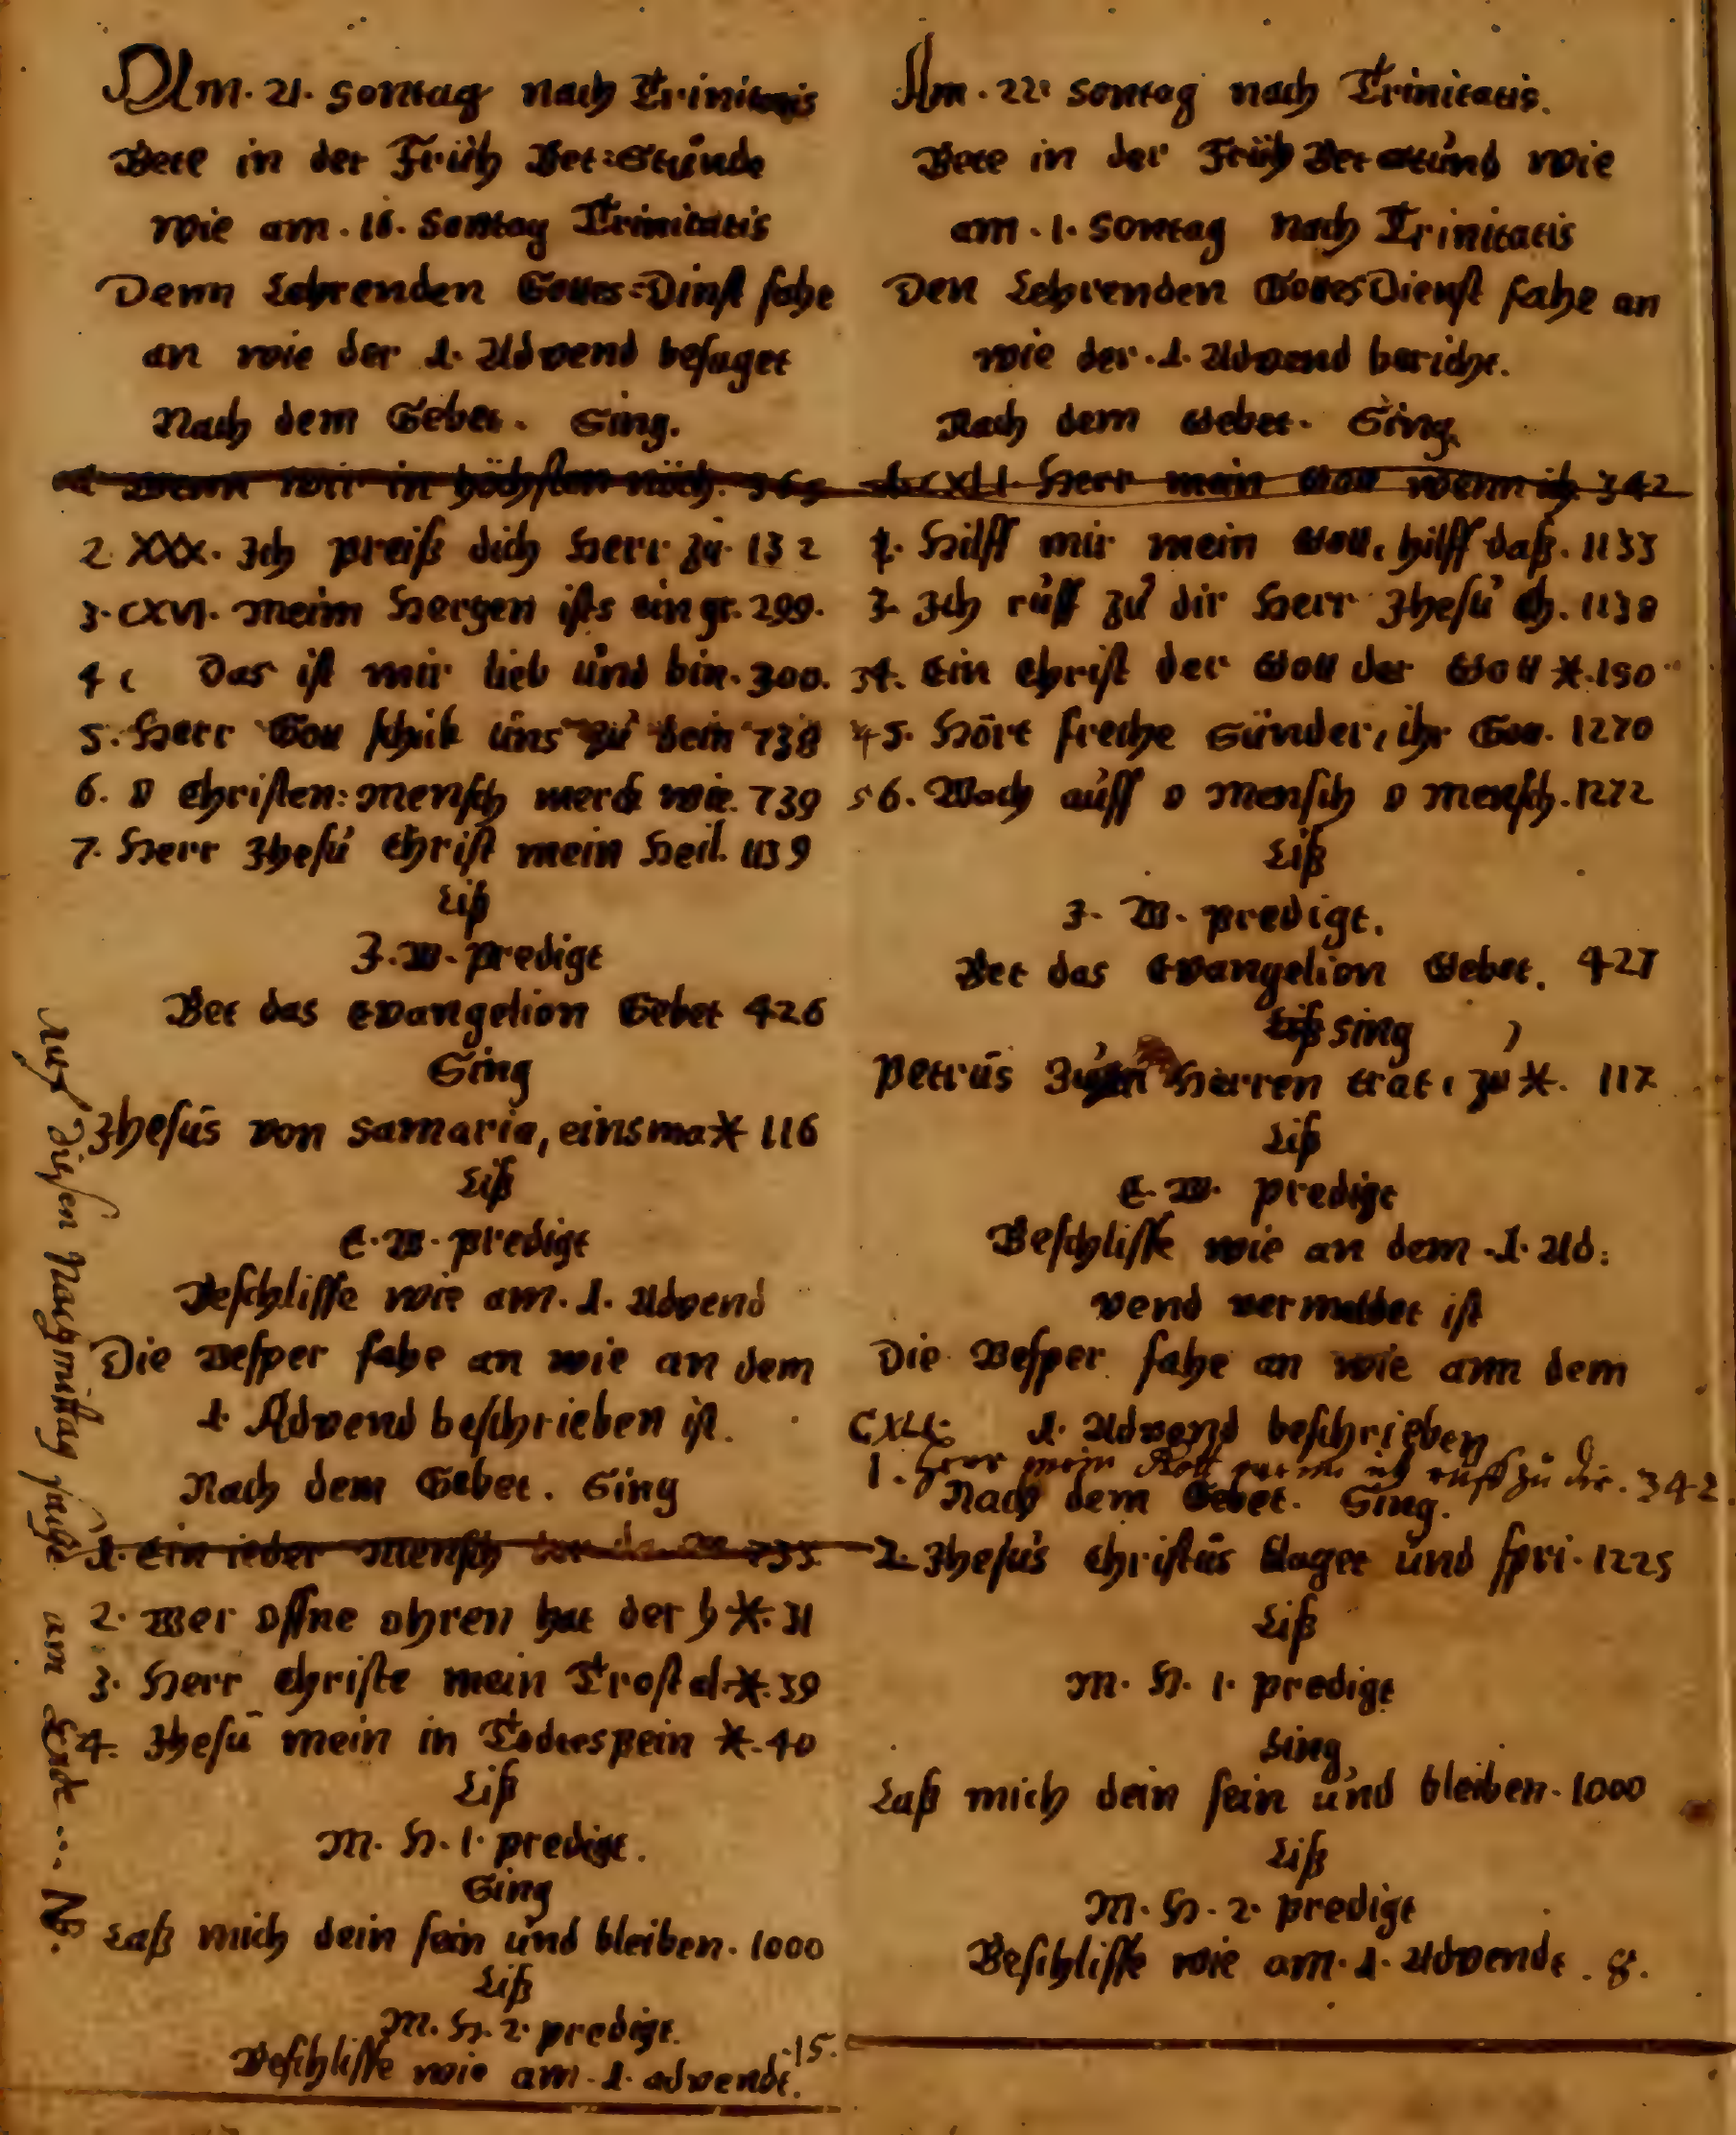 Am. 21. Sontag nach Trinitatis
Bete in der Früh Bet=Stunde
wie am. 16. Sontag Trinitatis
Denn Lehrenden Gottes=Dinst fahe
an wie der 1. Advend besaget
Nach dem Gebet. Sing.
1 Wenn wir in höchsten nöth. 365
2. XXX. Ich preiß dich Herr zu. 132
3. CXVI. Meim Hertzen ists ein gr. 299.
4 Das ist mir lieb und bin. 300.
5. Herr Gott schük uns zu dein 738
6. O Christen: Mensch merck wie. 739
7. Herr Ihesu Christ mein Heil. 1139
Liß
J. W. predigt
Bet das Evangelion Gebet 426
Sing
Ihesus von Samaria, einsma * 116
Liß
E. W. predigt
Beschlisse wie am. 1. Advend
Die Vesper fahe an wie an dem
1. Advend beschrieben ist.
Nach dem Gebet. Sing
1. Ein ieder Mensch 735
2. Wer Offne ohren hat der h *. 31
3. Herr Christe mein Trost d. *. 39
4. Ihesu mein in Todtespein *. 40
Liß
M. H. 1. predigt.
Sing
Laß mich dein sein und bleiben. 1000
Liß
M. H. 2. predigt.
Beschlisse wie am. 1. advendt. 15.
diesen Nachmittag fange am Ende ... NB.
Am. 22. Sontag nach Trinitatis.
Bete in der Früh Bet Stund wie
am. 1. Sontag Nach Trinitatis
Den Lehrenden GottesDienst fahe an
wie der. 1. Advend bericht.
Nach dem Gebet. Sing.
1. CXLI. Herr mein Gott wenn ich 342
2. Hilff mir mein Gott, hilff daß. 1133
3. Ich ruff zu dir Herr Ihesu Ch. 1138
34. Ein Christ der Gott der Gott *. 150
45. Hört freche Sünder, ihr Gott. 1270
56. Wach auff o Mensch o Mensch. 1272
Liß
J. W. predigt.
Bet das Evangelion Gebet. 427
Liß Sing
Petrus Zum Herren trat, zu *. 117
Liß
E. W. predigt
Beschlisse wie an dem. 1. Ad:
vend vermeldet ist
Die Vesper fahe an wie ann dem
1. Advend beschrieben
CXLI:
1. Herr mein Gott wenn ich ruff zu dir. 342.
Nach dem Gebet. Sing.
2. Ihesus Christus klaget und spri. 1225
Liß
M. H. 1. predigt
Sing
Laß mich dein sein und bleiben. 1000
Liß
M. H. 2. predigt
Beschlisse wie am. 1. Advendt. 8.